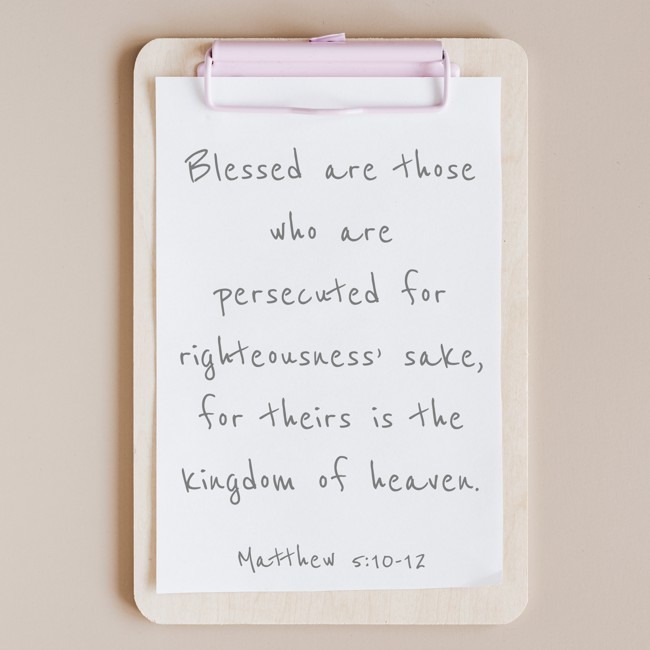 Blessed are those
who are
persecuted for
righteousness' sake,
for theirs is the
kingdom of heaven.
Matthew 5:10-12